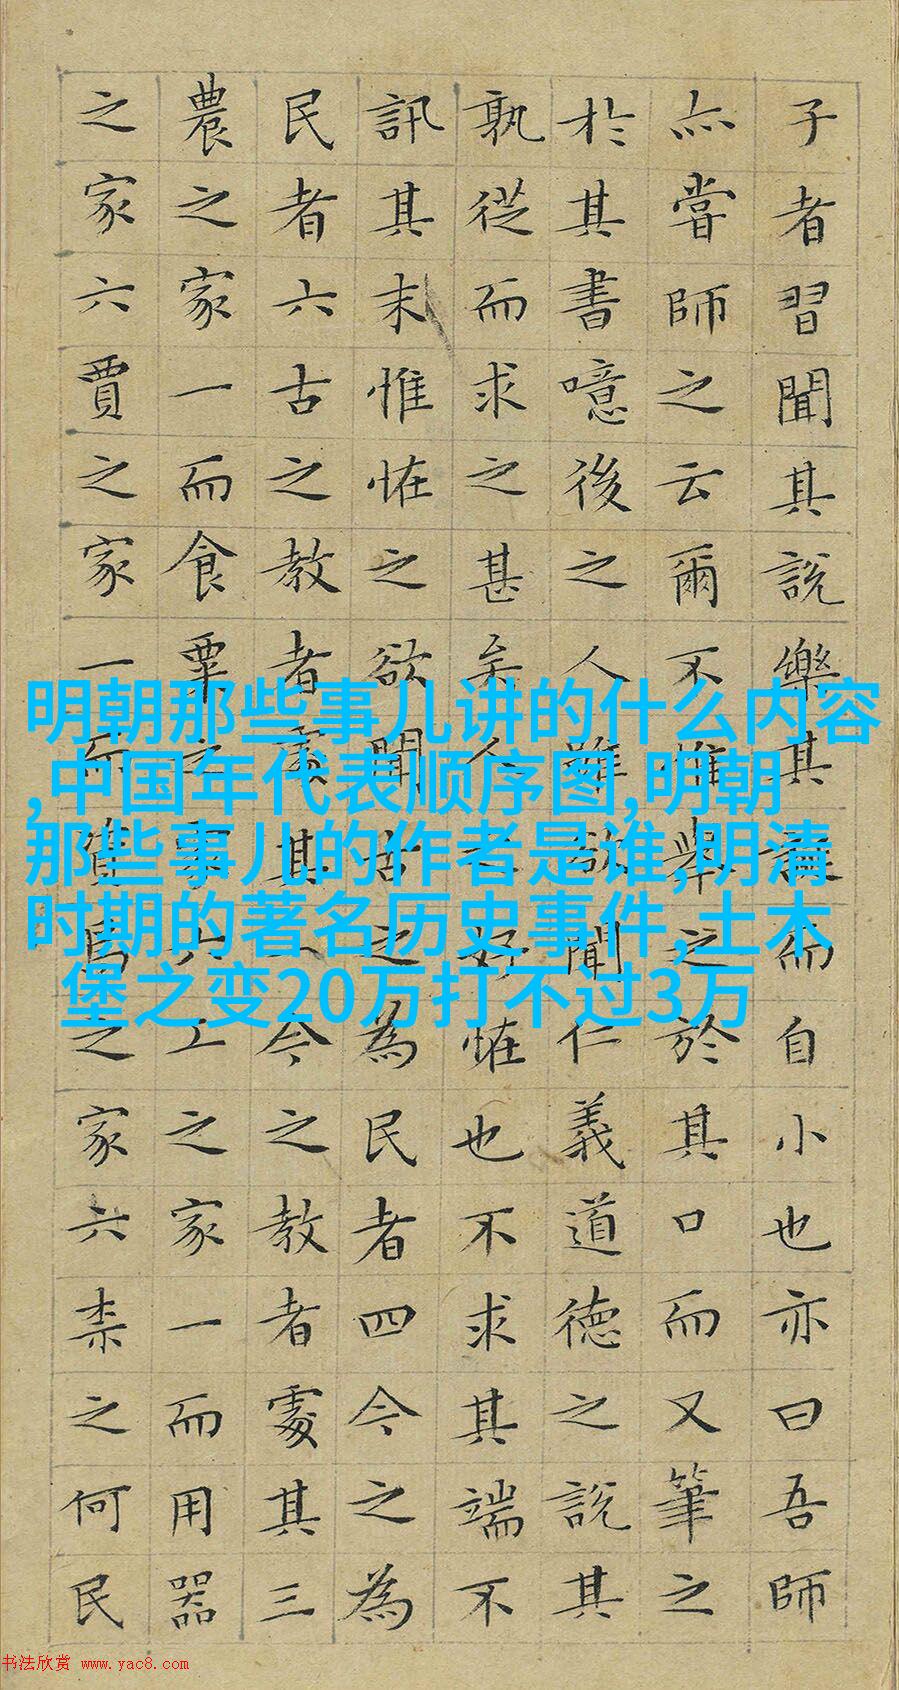 子者習聞其說樂其誕而自小也亦曰吾師
亦嘗師之云爾不惟舉之於其口而又筆之
於其書噫後之人雖欲聞仁義道德之說其
孰從而求之甚矣人之好恠也不求其端不
訊其末惟恠之欲聞古之為民者四今之為
民者六古之教者處其一今之教者處其三
農之家一而食粟之家六工之家一而用器
之家六賈之家一而資焉之家六柰之何民
明朝那些事儿讲的什么内容
,中国年代表顺序图,明朝
那些事儿的作者是谁,明清
时期的著名历史事件,土木
堡之变20万打不过3万
书法欣赏 www.yac8.com